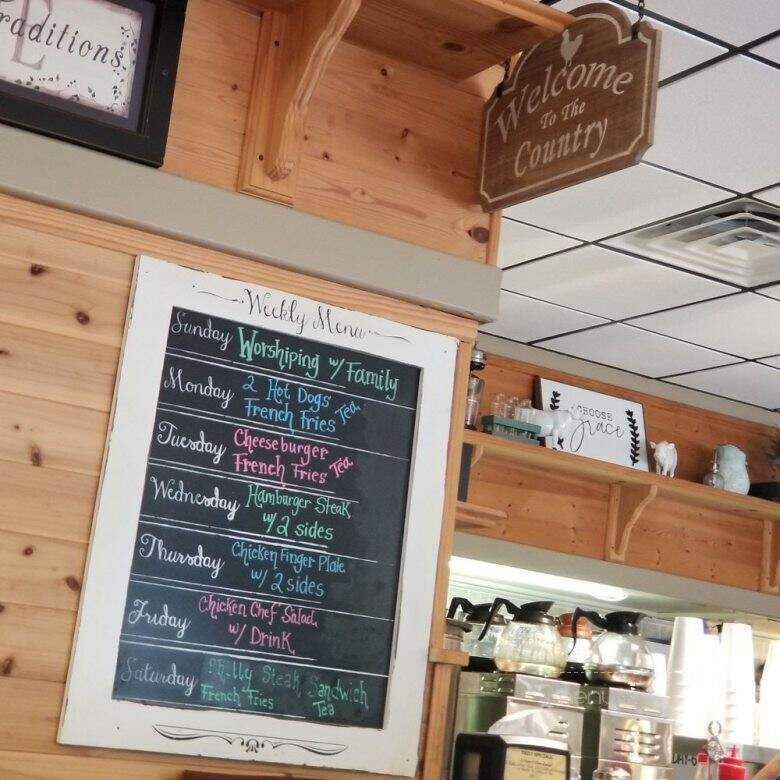 Traditions
Welcome
To The
Country
Weekly Menu
Sunday Worshiping w/ Family
Monday 2 Hot Dogs
French Fries Tea
Tuesday Cheeseburger
French Fries Tea
Wednesday Hamburger Steak
w/ 2 sides
Thursday Chicken Finger Plate
w/ 2 sides
Friday Chicken Chef Salad
w/ Drink
Saturday Philly Steak Sandwich
French Fries Tea
CHOOSE
Grace